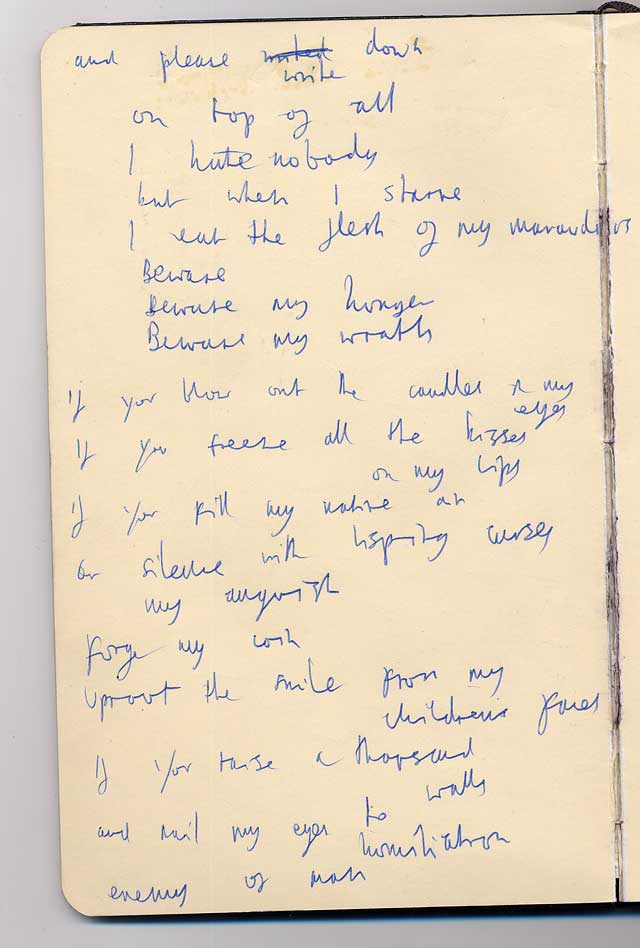 and please write down
on top of all
I hate nobody
but when I starve
I eat the flesh of my marauders
Beware
Beware my hunger
Beware my wrath
If you blow out the candles in my
eyes
If you freeze all the kisses
on my lips
If you fill my native air
or silence with lisping curses
my anguish
forge my coin
Uproot the smile from my
children's faces
If you raise a thousand
walls
and nail my eyes to
humiliation
enemy of man